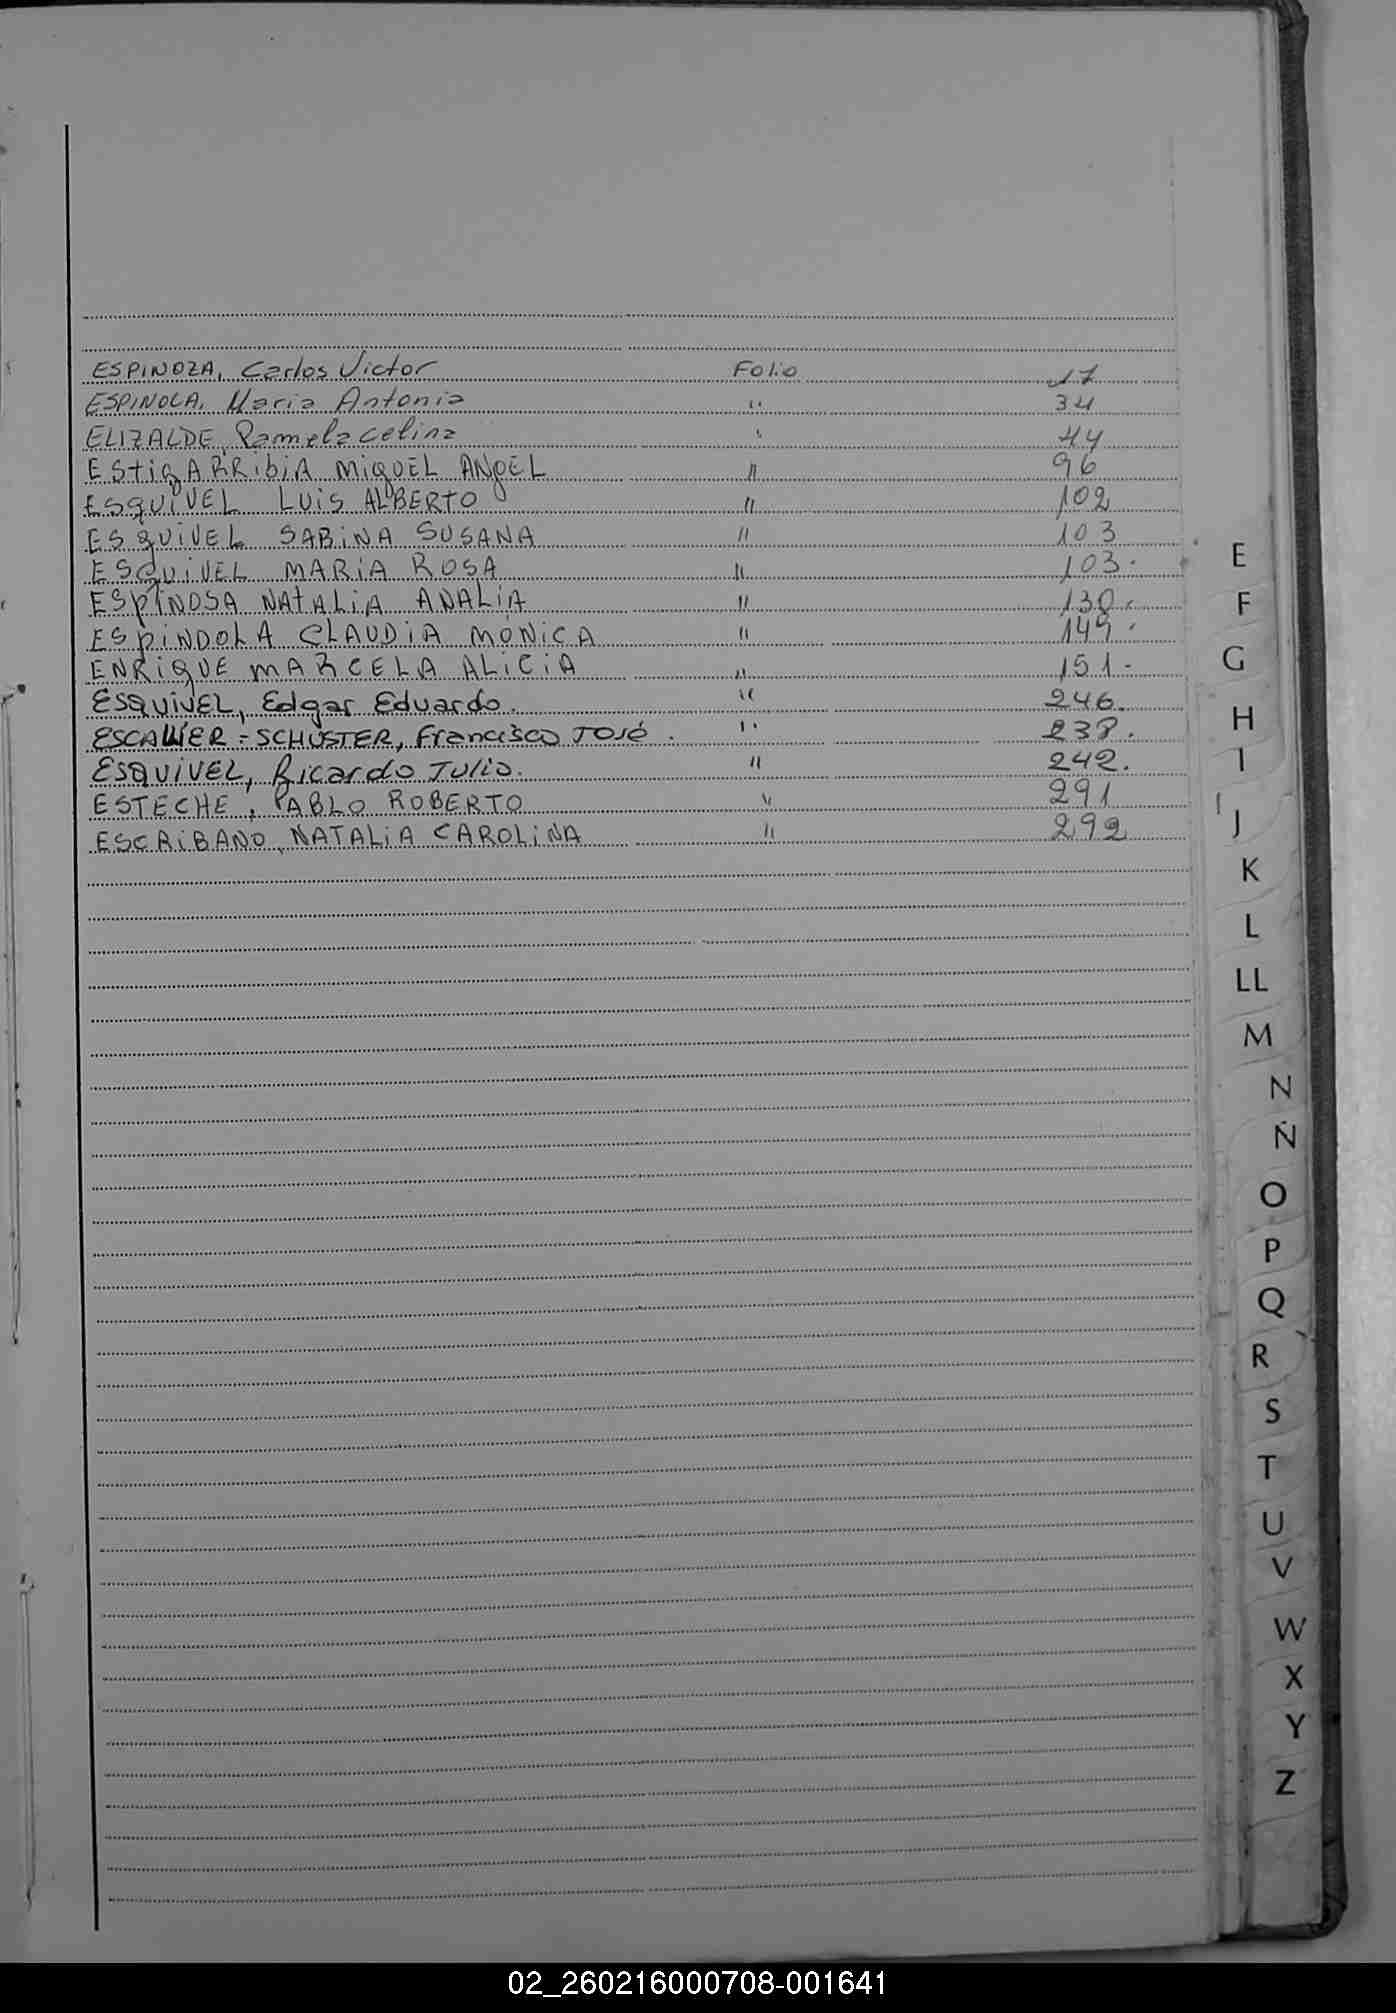 ESPINOZA, Carlos Victor Folio 17
ESPINOLA, Maria Antonia " 34
ELIZALDE, Pamela Celina " 44
EStigARRibiA MiguEL ANgEL " 96
ESquiVEL LUiS ALBERTO " 102
ESquiVEL SABiNA SUSANA " 103
ESquiVEL MARiA ROSA " 103.
ESpiNOSA NAtALiA ANALiA " 130.
ESpiNDOLA CLAUDiA MÓNiCA " 149.
ENRiqUE MARCELA ALiCiA " 151.
ESQUIVEL, Edgar Eduardo. " 246.
ESCALLIER=SCHUSTER, Francisco José. " 238.
ESQUIVEL, Ricardo Julio. " 242.
ESTECHE, PABLO ROBERTO " 291
ESCRIBANO, NATALiA CAROLiNA " 292
E
F
G
H
I
J
K
L
LL
M
N
Ñ
O
P
Q
R
S
T
U
V
W
X
Y
Z
02_260216000708-001641